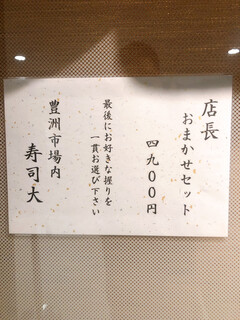 店長
おまかせセット
四九００円
最後にお好きな握りを
一貫お選び下さい
豊洲市場内
寿司大